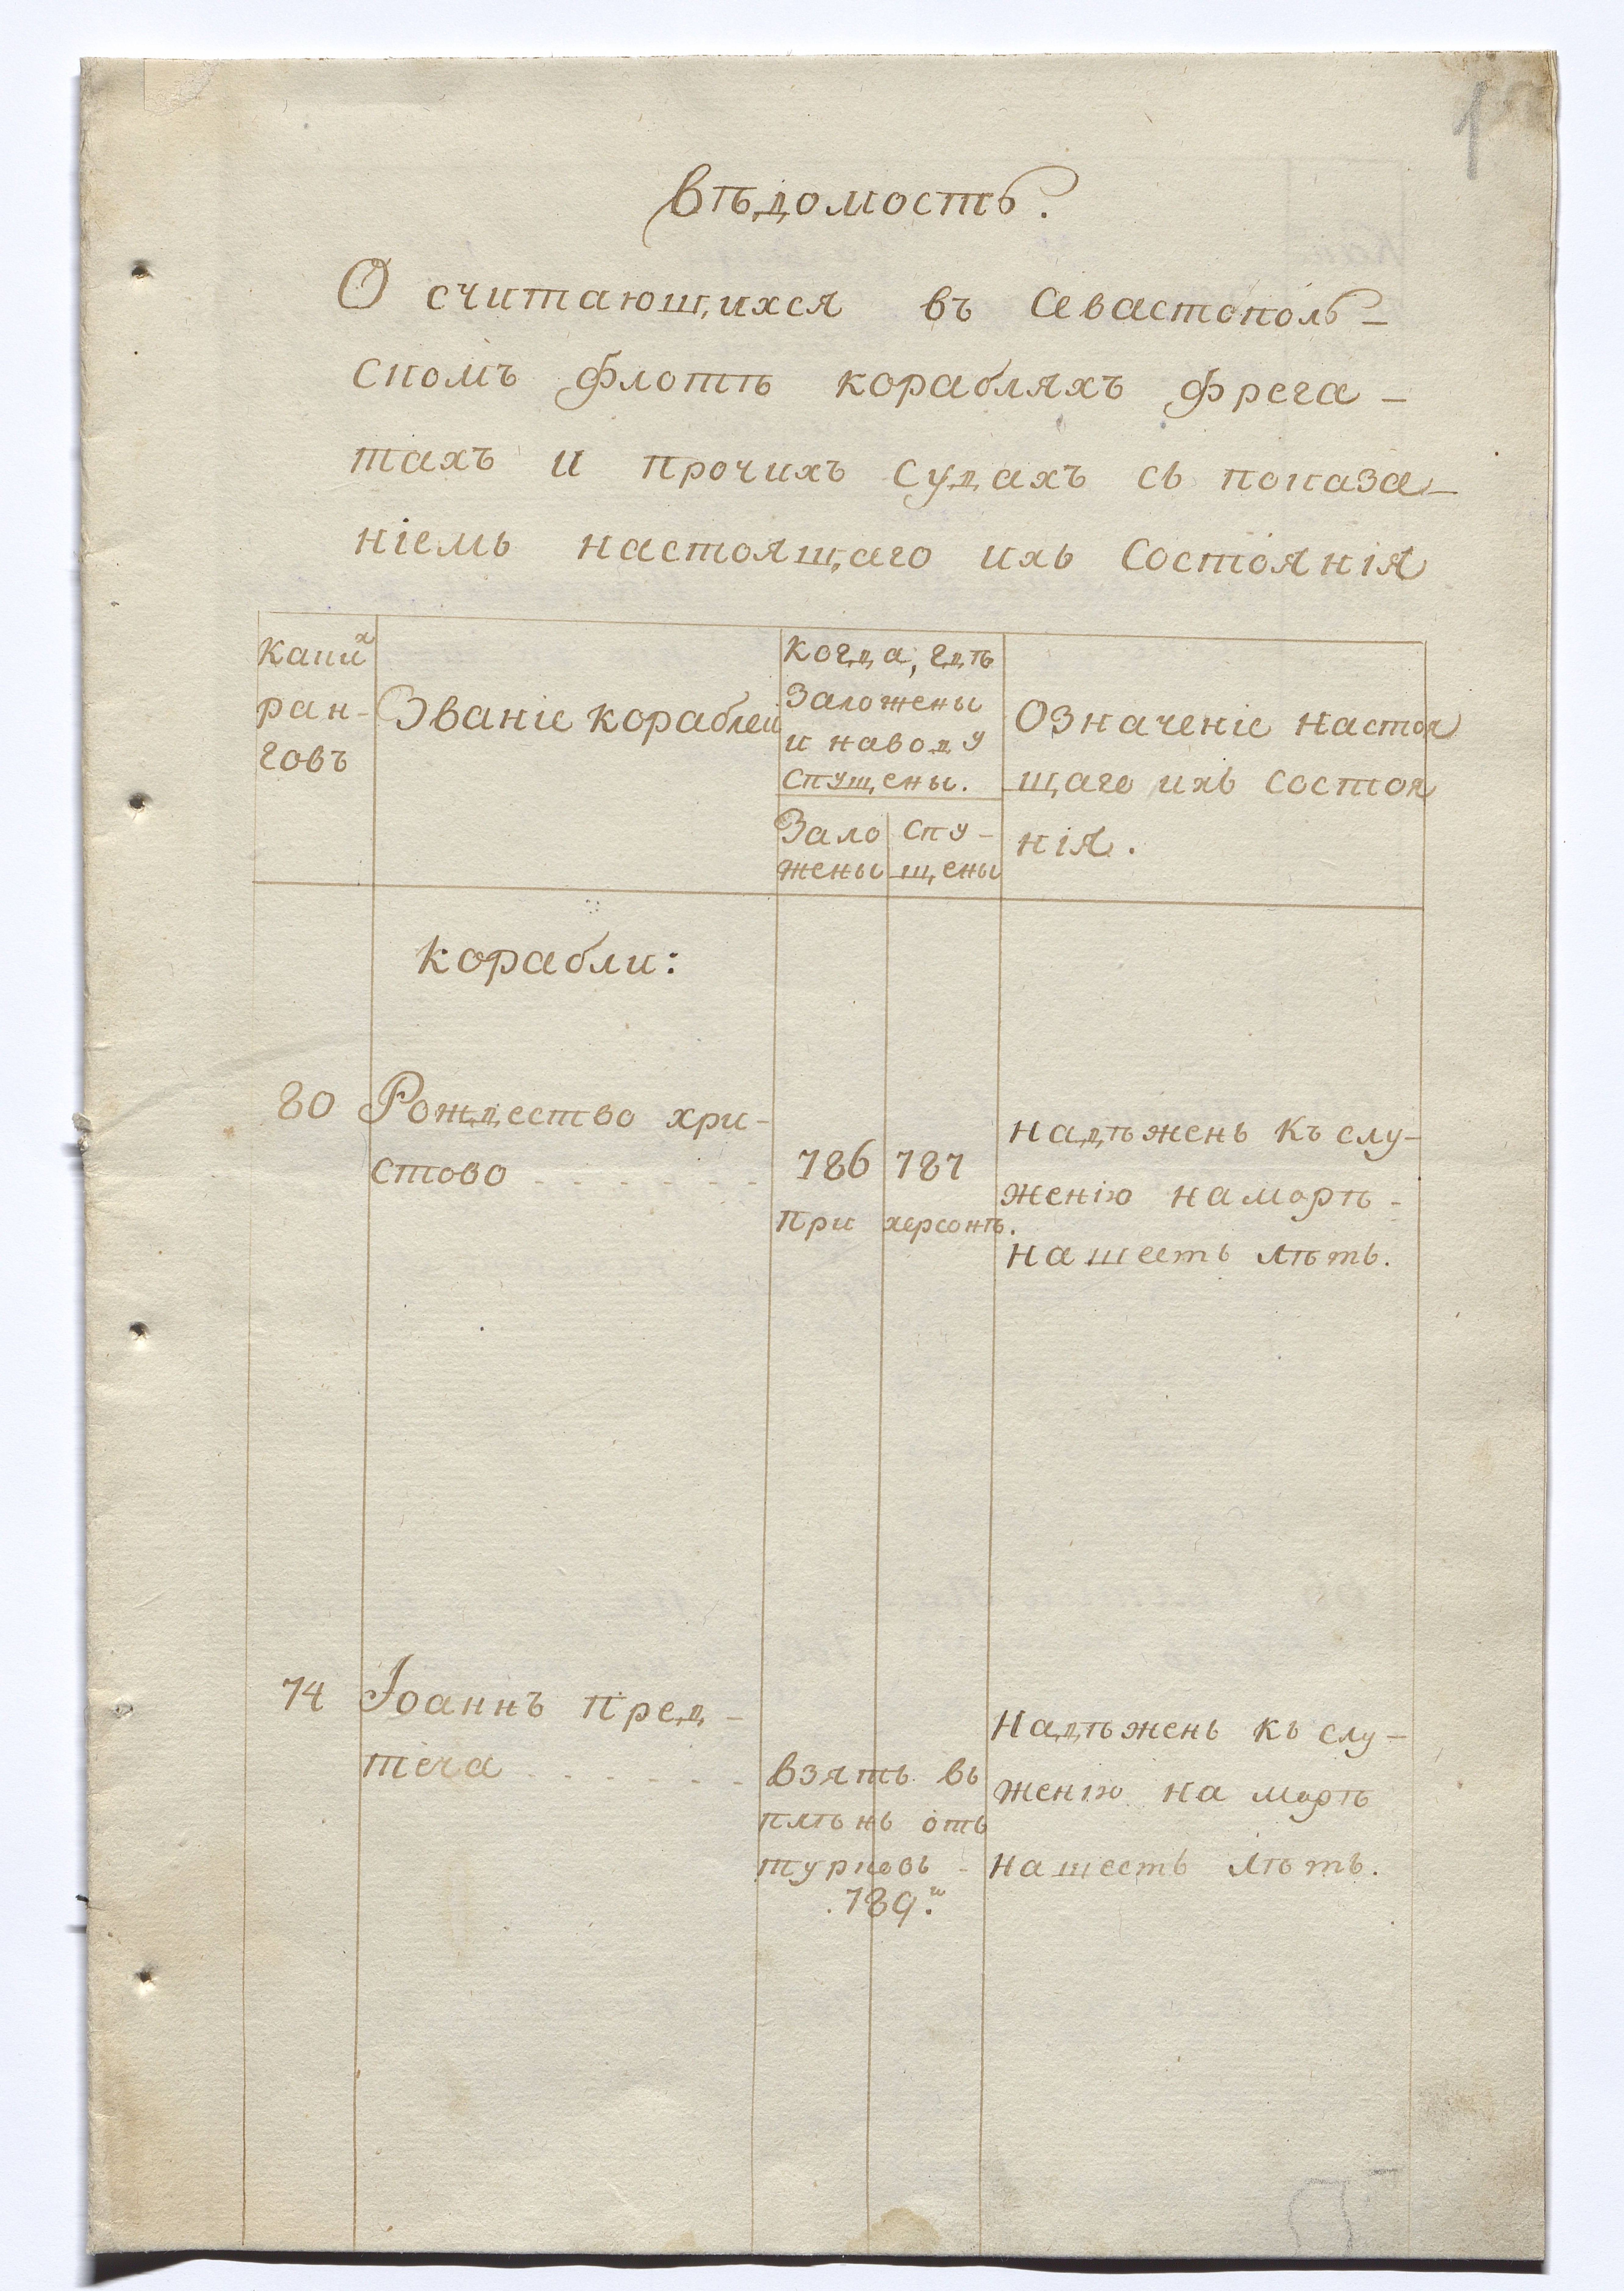 1
Вѣдомость.
О считающихся въ Севастополь-
скомъ флотѣ корабляхъ фрега-
тахъ и прочихъ судахъ сь показа-
ніемь настоящаго ихь состоянія
Какихъ
ран-
говъ
Званіе кораблеи
Когда, гдѣ
заложены
и наводу
спущены.
Зало
жены
спу-
щены
Означеніе настоя
щаго ихь состоя
нія.
корабли:
80
Рождество хри-
стово
786
787
При херсонѣ.
надѣжень къ слу-
женію наморѣ-
нашесть лѣть.
74
Іоаннъ пред-
теча
взять вь
плѣнь оть
турковь -
.789.
Надѣжень кь слу-
женію на морѣ
нашесть лѣть.